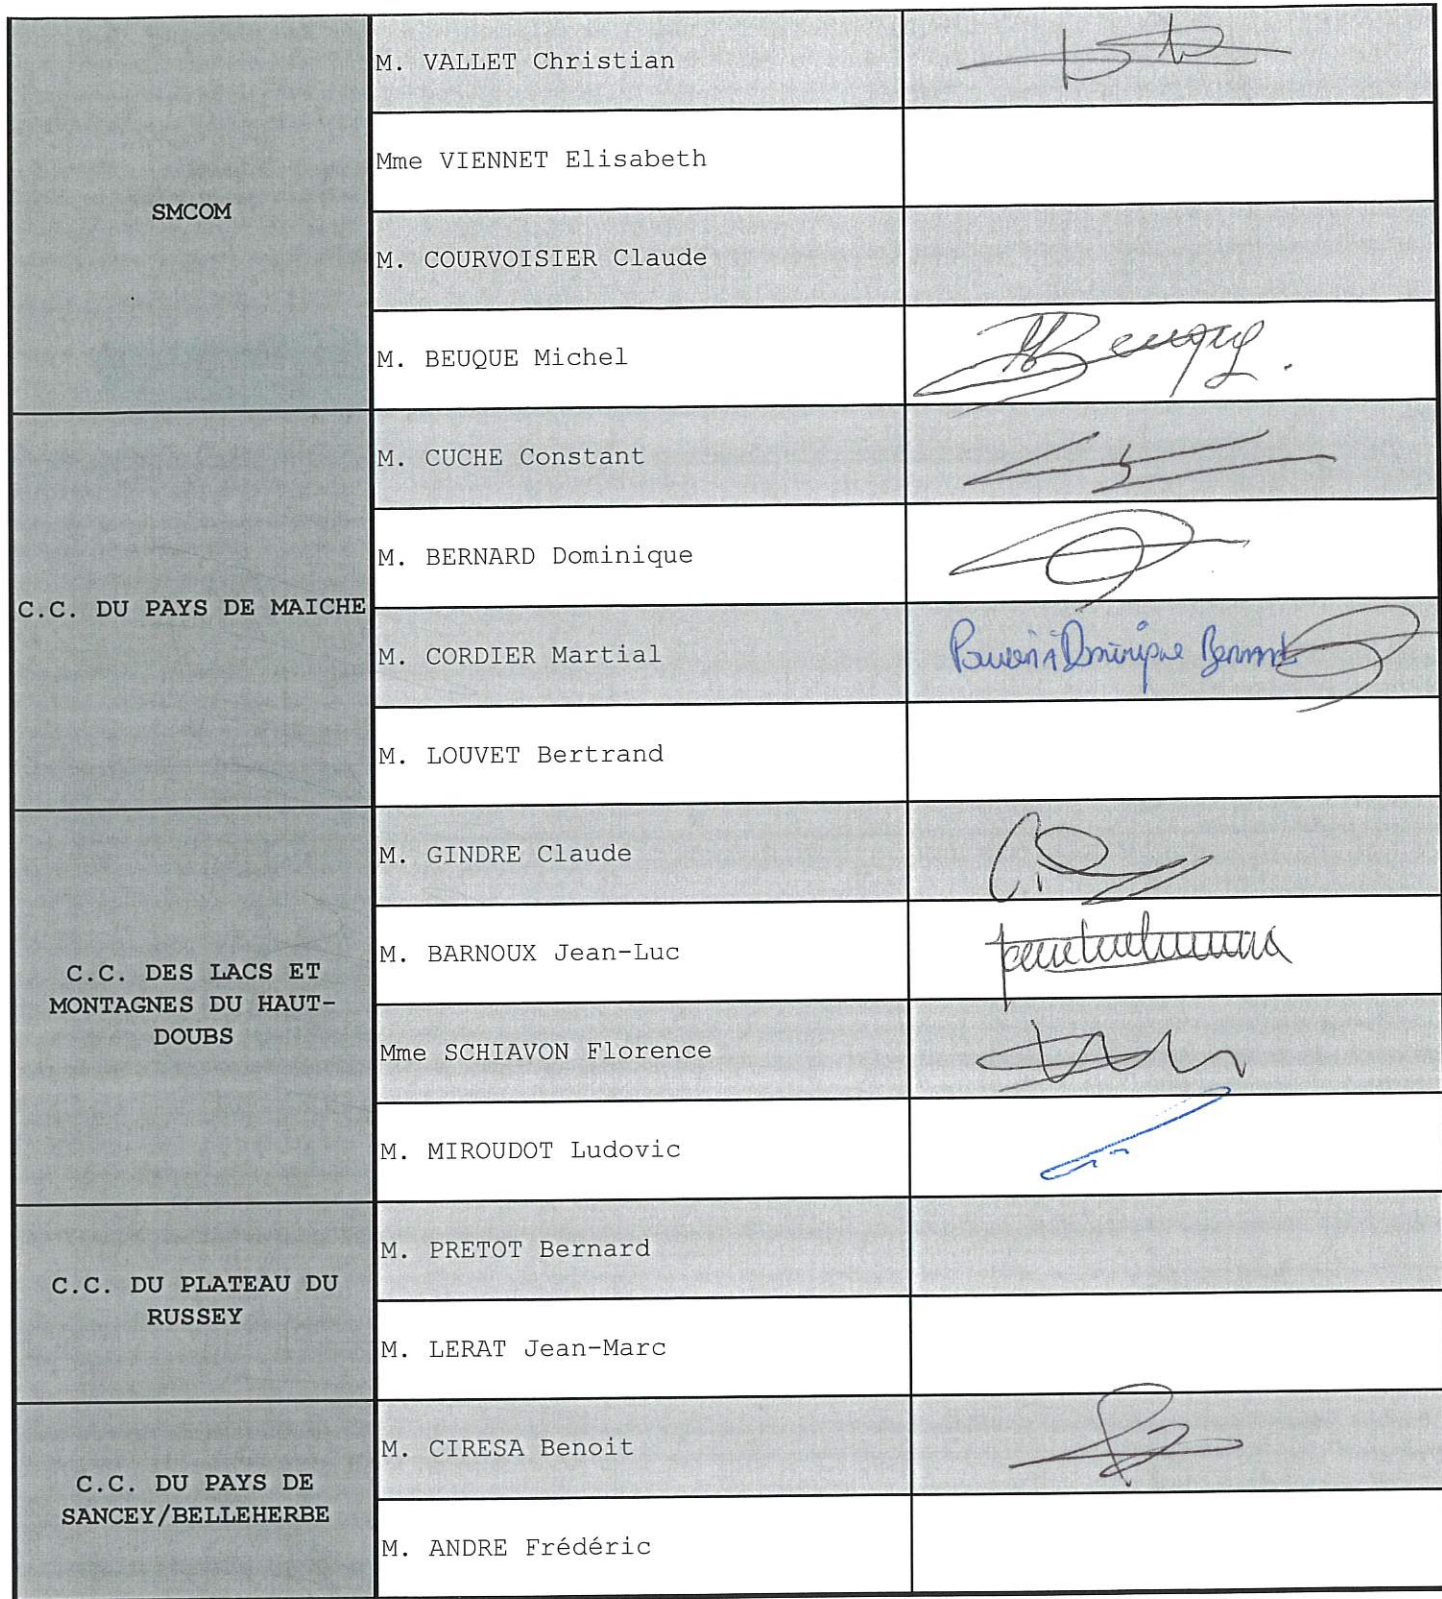 SMCOM
M. VALLET Christian
Mme VIENNET Elisabeth
M. COURVOISIER Claude
M. BEUQUE Michel
Beuque
C.C. DU PAYS DE MAICHE
M. CUCHE Constant
M. BERNARD Dominique
M. CORDIER Martial
Pouvoir à Dominique Bernard
M. LOUVET Bertrand
C.C. DES LACS ET
MONTAGNES DU HAUT-
DOUBS
M. GINDRE Claude
M. BARNOUX Jean-Luc
Mme SCHIAVON Florence
M. MIROUDOT Ludovic
C.C. DU PLATEAU DU
RUSSEY
M. PRETOT Bernard
M. LERAT Jean-Marc
C.C. DU PAYS DE
SANCEY/BELLEHERBE
M. CIRESA Benoit
M. ANDRE Frédéric